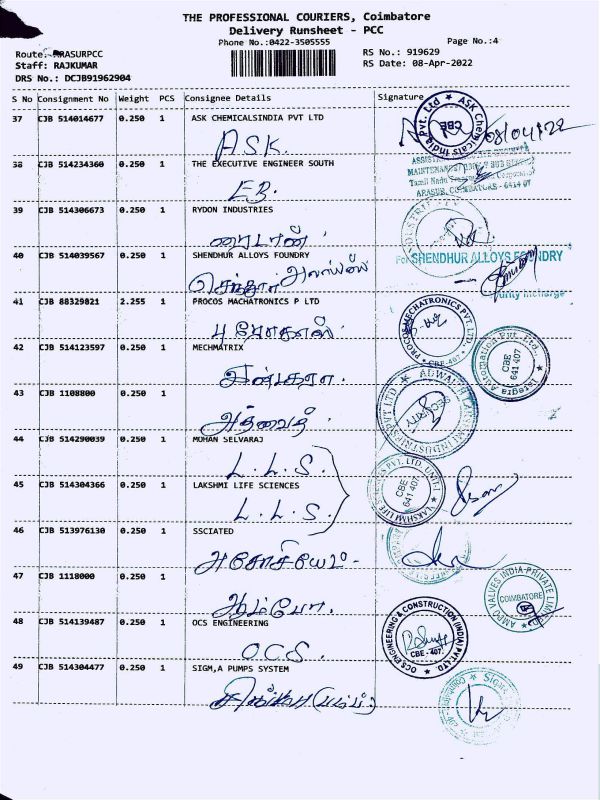 THE PROFESSIONAL COURIERS, Coimbatore
Delivery Runsheet - PCC
Phone No.:0422-3505555
Page No.:4
Route: ARASURPCC
RS No.: 919629
Staff: RAJKUMAR
RS Date: 08-Apr-2022
DRS No.: DCJB91962904
S No Consignment No Weight PCS Consignee Details Signature
37 CJB 514014677 0.250 1 ASK CHEMICALSINDIA PVT LTD
A.S.K. 08/04/22
ASK Chemicals India Pvt. Ltd CBE
38 CJB 514234360 0.250 1 THE EXECUTIVE ENGINEER SOUTH
E.B.
ARASUR, COIMBATORE - 641407
39 CJB 514306673 0.250 1 RYDON INDUSTRIES
ரைடான்
40 CJB 514039567 0.250 1 SHENDHUR ALLOYS FOUNDRY
For SHENDHUR ALLOYS FOUNDRY
செந்தூர் அலாய்ஸ்
Security Incharge
41 CJB 88329821 2.255 1 PROCOS MACHATRONICS P LTD
PROCOS MECHATRONICS PVT. LTD. CBE-407
42 CJB 514123597 0.250 1 MECHMATRIX
Integra Automation Pvt. Ltd., CBE 641 407
43 CJB 1108800 0.250 1
அத்வைத்
ADWAITH LAKSHMI INDUSTRIES PVT LTD SECURITY
44 CJB 514290039 0.250 1 MOHAN SELVARAJ
L.L.S.
45 CJB 514304366 0.250 1 LAKSHMI LIFE SCIENCES
L.L.S.
LAKSHMI LIFE SCIENCES PVT. LTD. UNIT-I CBE 641 407
46 CJB 513976130 0.250 1 SSCIATED
47 CJB 1118000 0.250 1
AMPO VALVES INDIA PRIVATE LIMITED COIMBATORE
48 CJB 514139487 0.250 1 OCS ENGINEERING
O.C.S.
OCS ENGINEERING & CONSTRUCTION (INDIA) PVT LTD CBE - 407
49 CJB 514304477 0.250 1 SIGM,A PUMPS SYSTEM